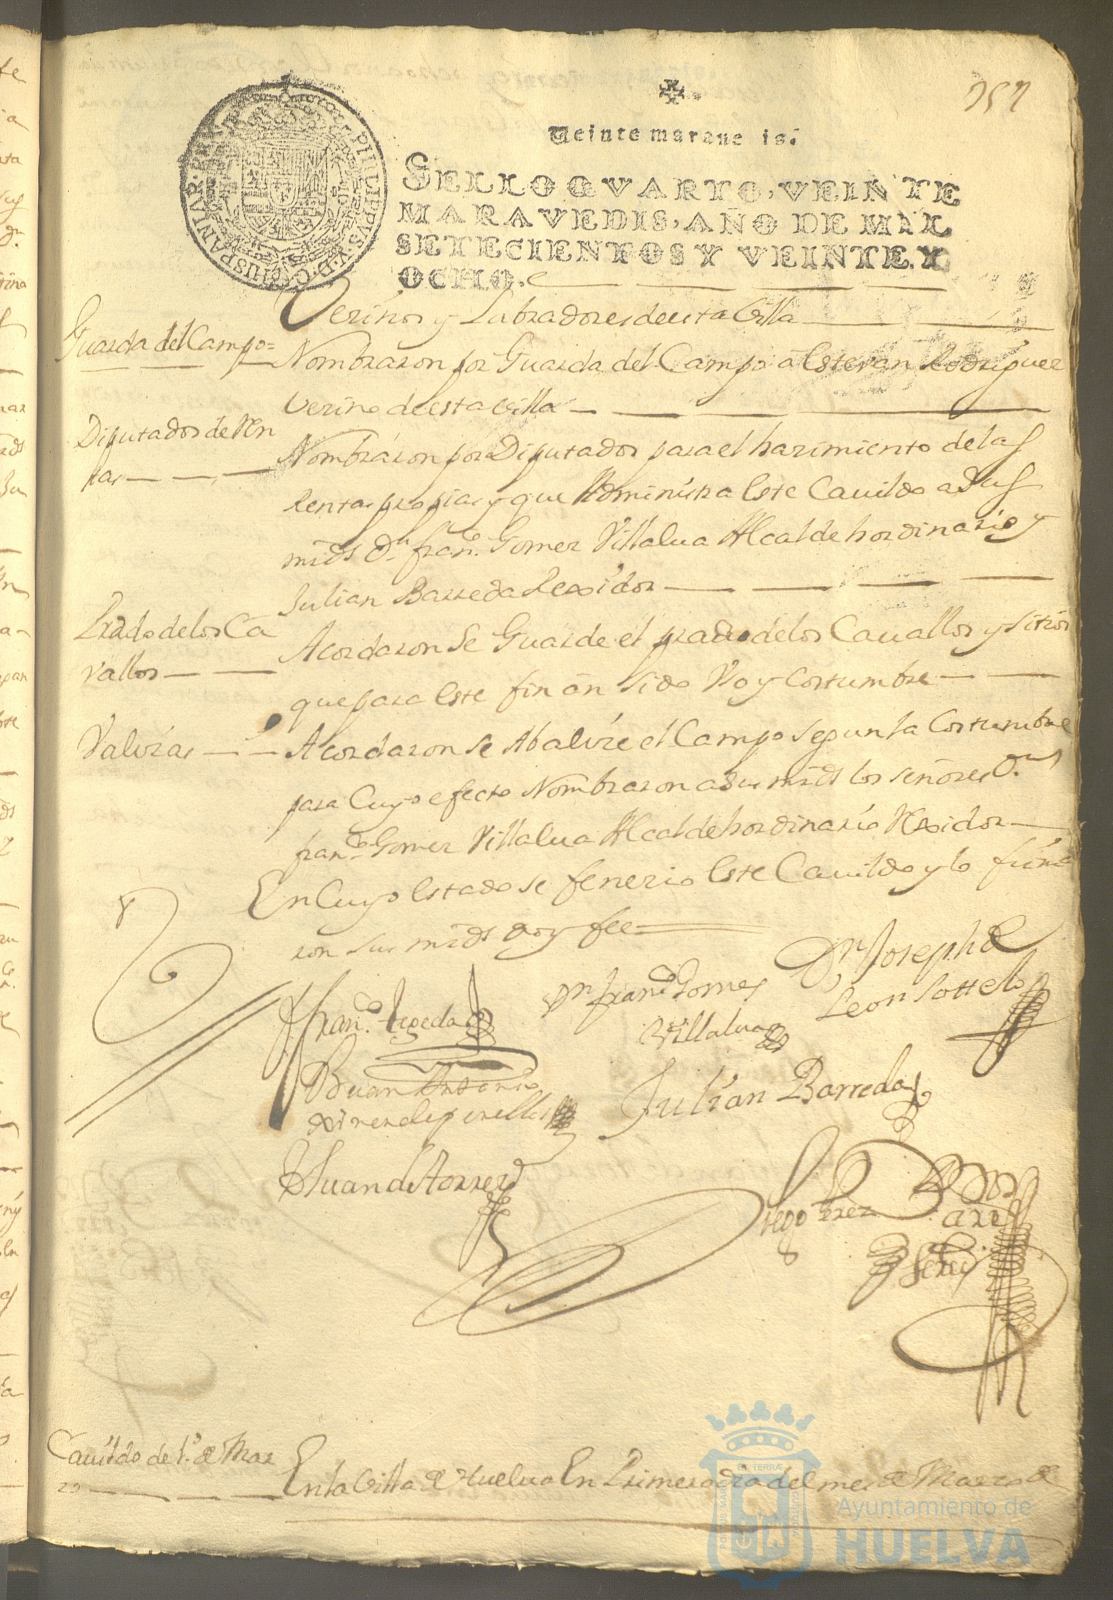 257
Veinte marauedis.
SELLO QVARTO, VEINTE
MARAVEDIS, AÑO DE MIL
SETECIENTOS Y VEINTE Y
OCHO.
PHILIPPVS V D G HISPANIAR
Vezinos y Labradores desta Villa
Guarda del Campo=
Nombraron por Guarda del Campo a Estevan Rodriguez
vezino desta villa
Diputados de Ren
tas
Nombraron por Diputados para el hazimiento de las
Rentas propias y que Administra Este Cauildo a Sus
mrds Dn franco Gomez Villalua Alcalde hordinario y
Julian Barreda Rexidor
Prado de los Ca
vallos
Acordaron Se Guarde el prado de los Cauallos y sitios
que para Este fin an sido Vso y Costumbre
Valizas
Acordaron se Abalize el Campo segun la Costumbre
para Cuyo efecto Nombraron a sus mrds los señores Dn
franco Gomez Villalua Alcalde hordinario Rexidor
En Cuyo Estado se fenezio Este Cauildo y lo firma
ron sus mrds doy fee
Dn Joseph de
Leon Sottelo
Dn franco Gomez
Villalua
franco Tegeda
Juan Antonio
Julian Barreda
Juan de Torres
Diego Perez
Cauildo de 1º de Mar
zo
En la Villa de Huelua En Primero dia del mes de Marzo de
Ayuntamiento de
HUELVA